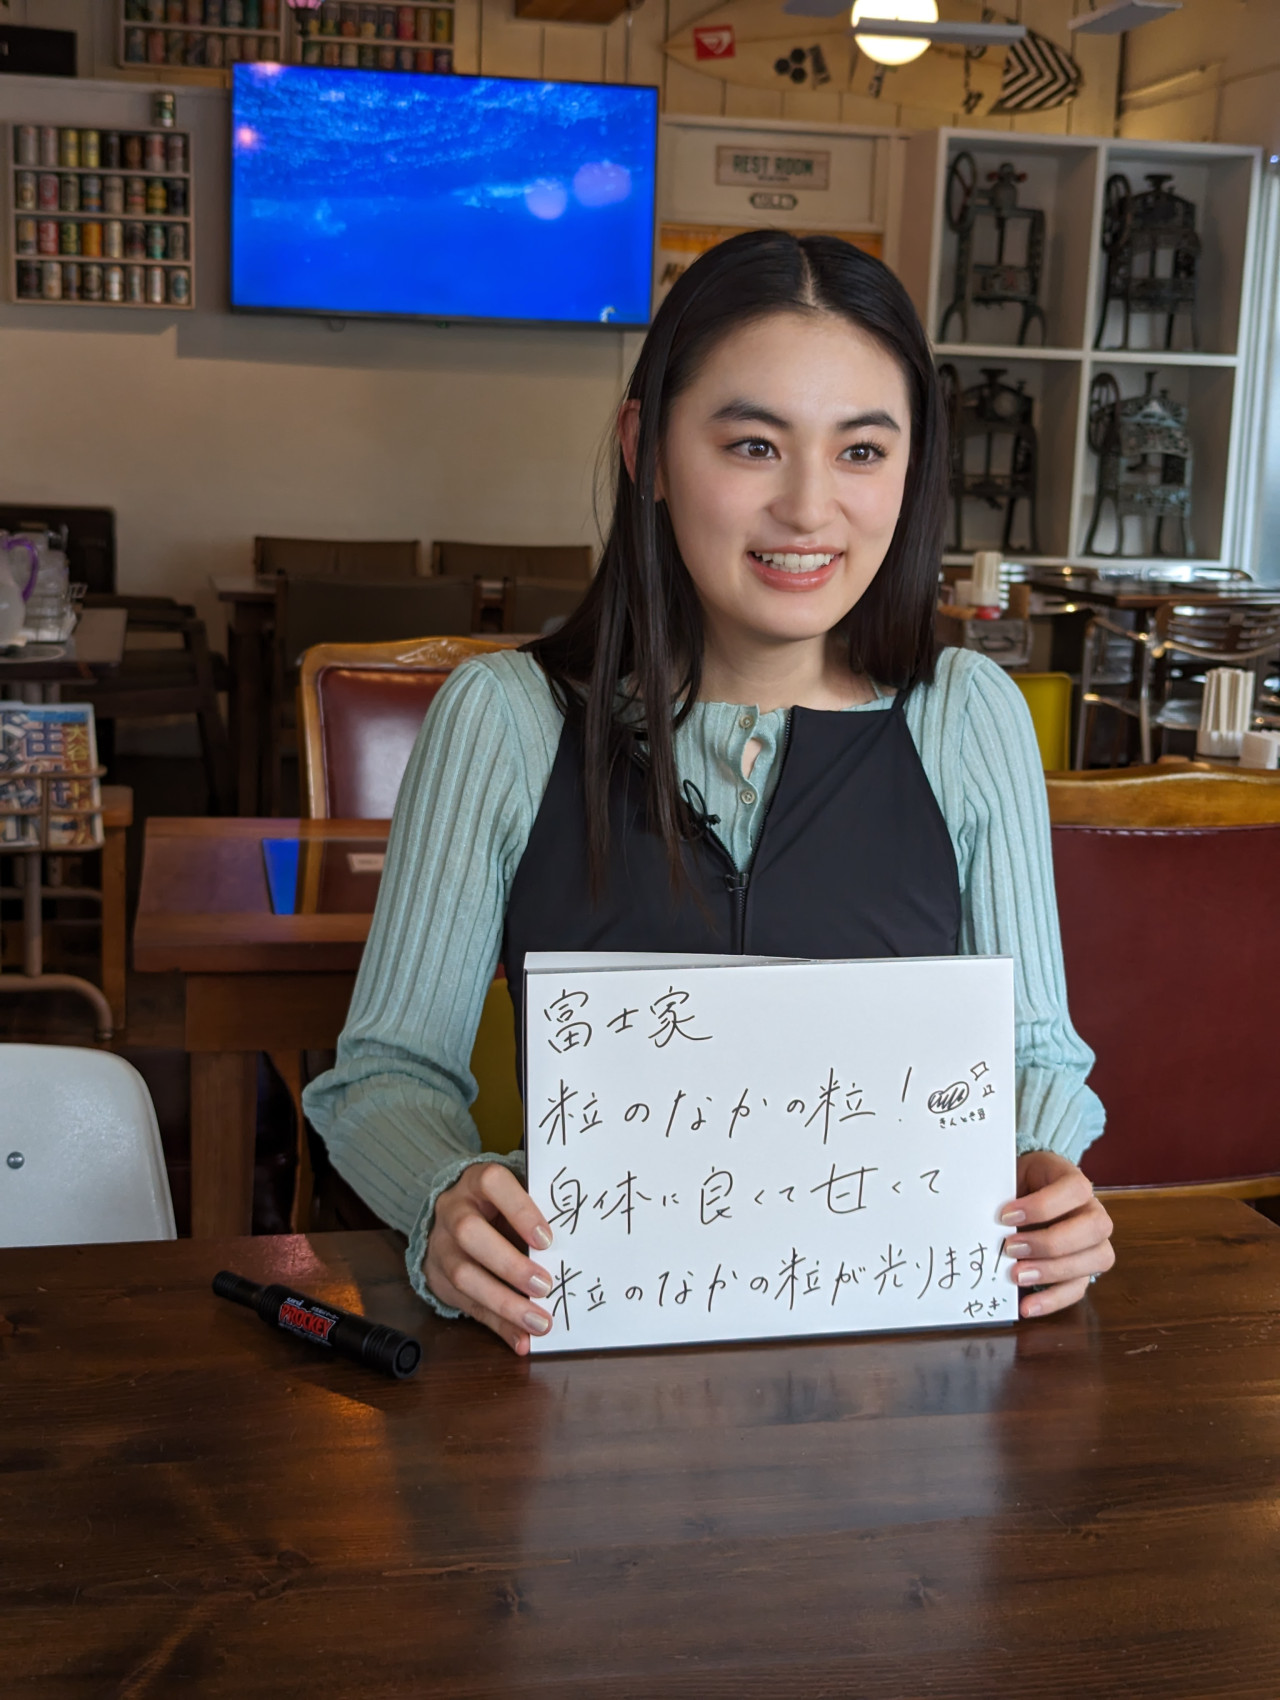 REST ROOM
富士家
粒のなかの粒!
きんとき豆
身体に良くて甘くて
粒のなかの粒が光ります!
やぎ
uni
PROCKEY